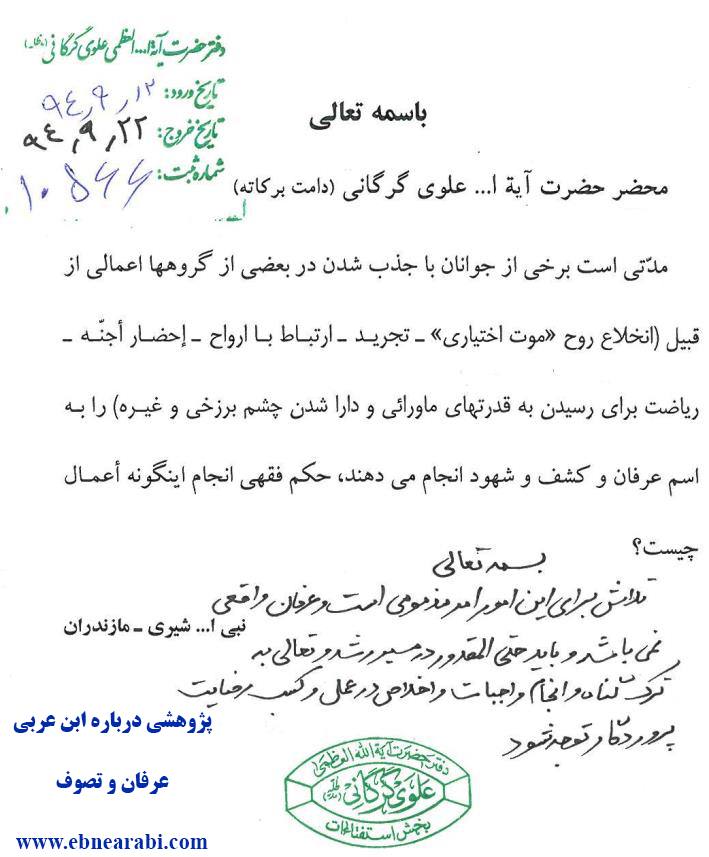 دفتر حضرت آیة ا... العظمی علوی گرگانی (مد ظله)
تاریخ ورود: ۹۴٫۹٫۱۲
تاریخ خروج: ۹۴٫۹٫۲۲
شماره ثبت: ۱۰۵۶۶
باسمه تعالی
محضر حضرت آیة ا... علوی گرگانی (دامت برکاته)
مدّتی است برخی از جوانان با جذب شدن در بعضی از گروهها اعمالی از
قبیل (انخلاع روح «موت اختیاری» ـ تجرید ـ ارتباط با ارواح ـ إحضار أجنّه ـ
ریاضت برای رسیدن به قدرتهای ماورائی و دارا شدن چشم برزخی و غیره) را به
اسم عرفان و کشف و شهود انجام می دهند، حکم فقهی انجام اینگونه أعمال
چیست؟
نبی ا... شیری ـ مازندران
بسمه تعالی
تلاش برای این امور امر مذمومی است و عرفان واقعی
نمی باشد و باید حتی المقدور در مسیر رشد و تعالی به
ترک گناه و انجام واجبات و اخلاص در عمل و کسب رضایت
پروردگار توجه شود
دفتر حضرت آیة الله العظمی
علوی گرگانی (مد ظله)
بخش استفتائات
پژوهشی درباره ابن عربی
عرفان و تصوف
www.ebnearabi.com